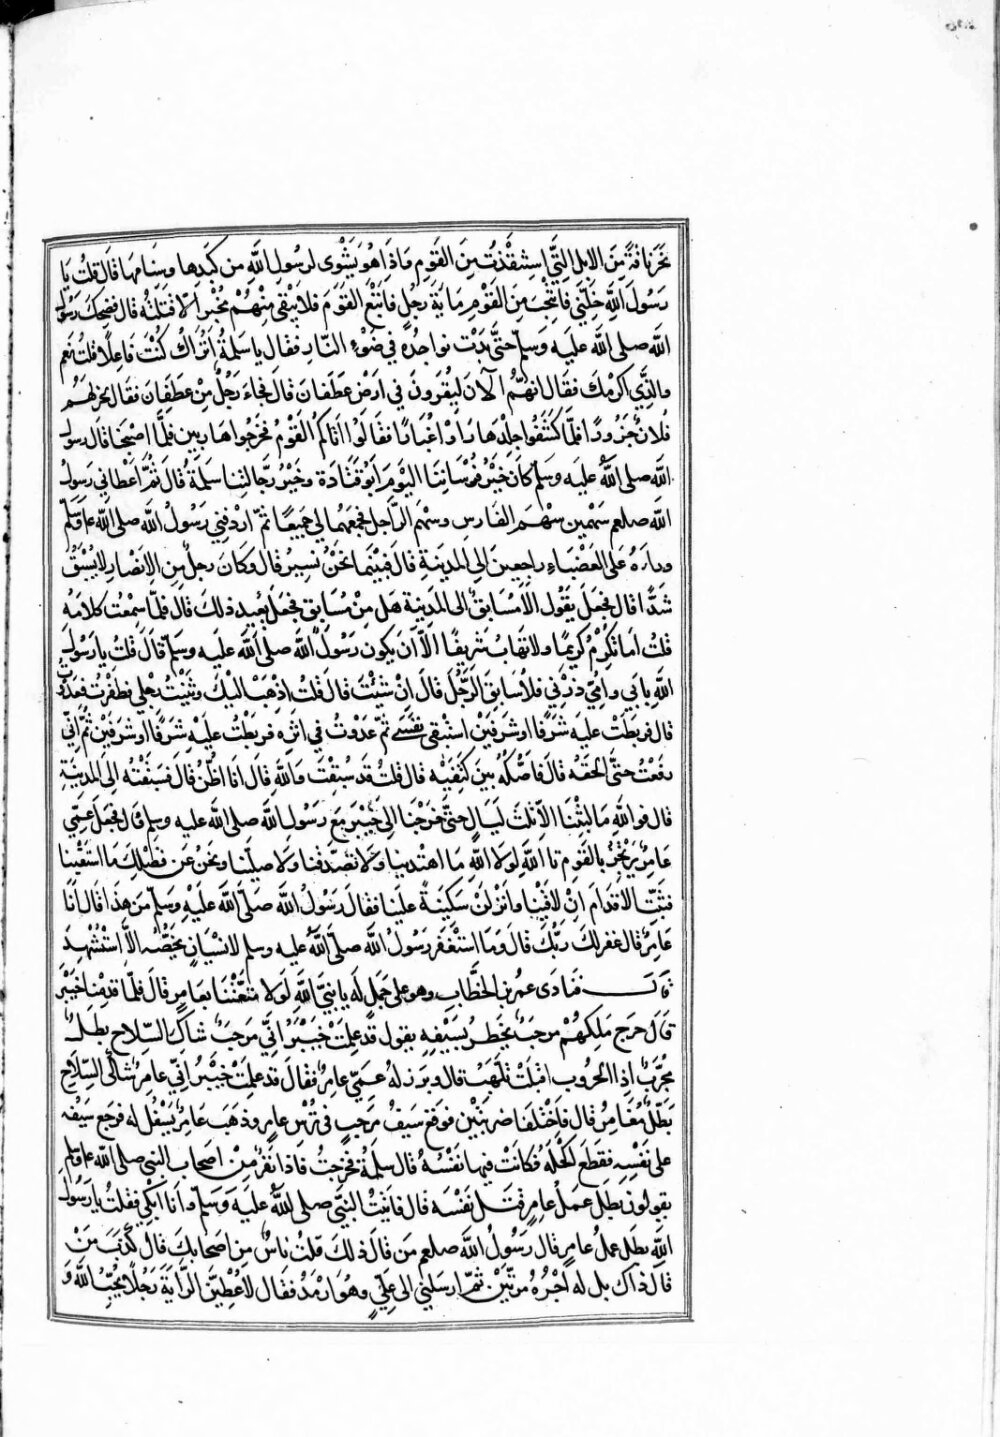 نحر ناقة من الابل التي استنقذت من القوم واذا هو يشوى لرسول الله من كبدها وسنامها قال قلت يا
رسول الله خلني فانتخب من القوم ماية رجل فاتبع القوم فلا يبقى منهم مخبر الا قتلته قال فضحك رسول
الله صلى الله عليه وسلم حتى بدت نواجده في ضوء النار فقال يا سلمة اتراك كنت فاعلا قلت نعم
والذي اكرمك فقال انهم الآن ليقرون في ارض غطفان قال فجاء رجل من غطفان فقال نحر لهم
فلان جزورا فلما كشفوا جلدها راوا غبارا فقالوا اتاكم القوم فخرجوا هاربين فلما اصبحنا قال رسول
الله صلى الله عليه وسلم كان خير فرساننا اليوم ابو قتادة وخير رجالتنا سلمة قال ثم اعطاني رسول
الله صلعم سهمين سهم الفارس وسهم الراجل فجمعهما لي جميعا ثم اردفني رسول الله صلى الله عليه وسلم
وراءه على العضباء راجعين الى المدينة قال فبينما نحن نسير قال وكان رجل من الانصار لا يسبق
شدا قال فجعل يقول الا مسابق الى المدينة هل من مسابق فجعل يعيد ذلك قال فلما سمعت كلامه
قلت اما تكرم كريما ولا تهاب شريفا الا ان يكون رسول الله صلى الله عليه وسلم قال قلت يا رسول
الله بابي وامي ذرني فلاسابق الرجل قال ان شئت قال قلت اذهب اليك وثنيت رجلي فطفرت فعدوت
قال فربطت عليه شرفا او شرفين استبقى نفسي ثم عدوت في اثره فربطت عليه شرفا او شرفين ثم اني
رفعت حتى الحقه قال فاصكه بين كتفيه قال قلت قد سبقت والله قال انا اظن قال فسبقته الى المدينة
قال فوالله ما لبثنا الا ثلث ليال حتى خرجنا الى خيبر مع رسول الله صلى الله عليه وسلم قال فجعل عمي
عامر يرتجز بالقوم تا الله لولا الله ما اهتدينا ولا تصدقنا ولا صلينا ونحن عن فضلك ما استغنينا
فثبت الاقدام ان لاقينا وانزلن سكينة علينا فقال رسول الله صلى الله عليه وسلم من هذا قال انا
عامر قال غفر لك ربك قال وما استغفر رسول الله صلى الله عليه وسلم لانسان يخصه الا استشهد
قال فنادى عمر بن الخطاب وهو على جمل له يا نبي الله لولا متعتنا بعامر قال فلما قدمنا خيبر
قال خرج ملكهم مرحب يخطر بسيفه يقول قد علمت خيبر اني مرحب شاك السلاح بطل
مجرب اذا الحروب اقبلت تلهب قال وبرز له عمي عامر فقال قد علمت خيبر اني عامر شاكى السلاح
بطل مغامر قال فاختلفا ضربتين فوقع سيف مرحب في ترس عامر وذهب عامر يسفل له فرجع سيفه
على نفسه فقطع اكحله فكانت فيها نفسه قال سلمة فخرجت فاذا نفر من اصحاب النبي صلى الله عليه وسلم
يقولون بطل عمل عامر قتل نفسه قال فاتيت النبي صلى الله عليه وسلم وانا ابكي فقلت يا رسول
الله بطل عمل عامر قال رسول الله صلعم من قال ذلك قلت ناس من اصحابك قال كذب من
قال ذاك بل له اجره مرتين ثم ارسلني الى علي وهو ارمد فقال لاعطين الراية رجلا يحب الله و